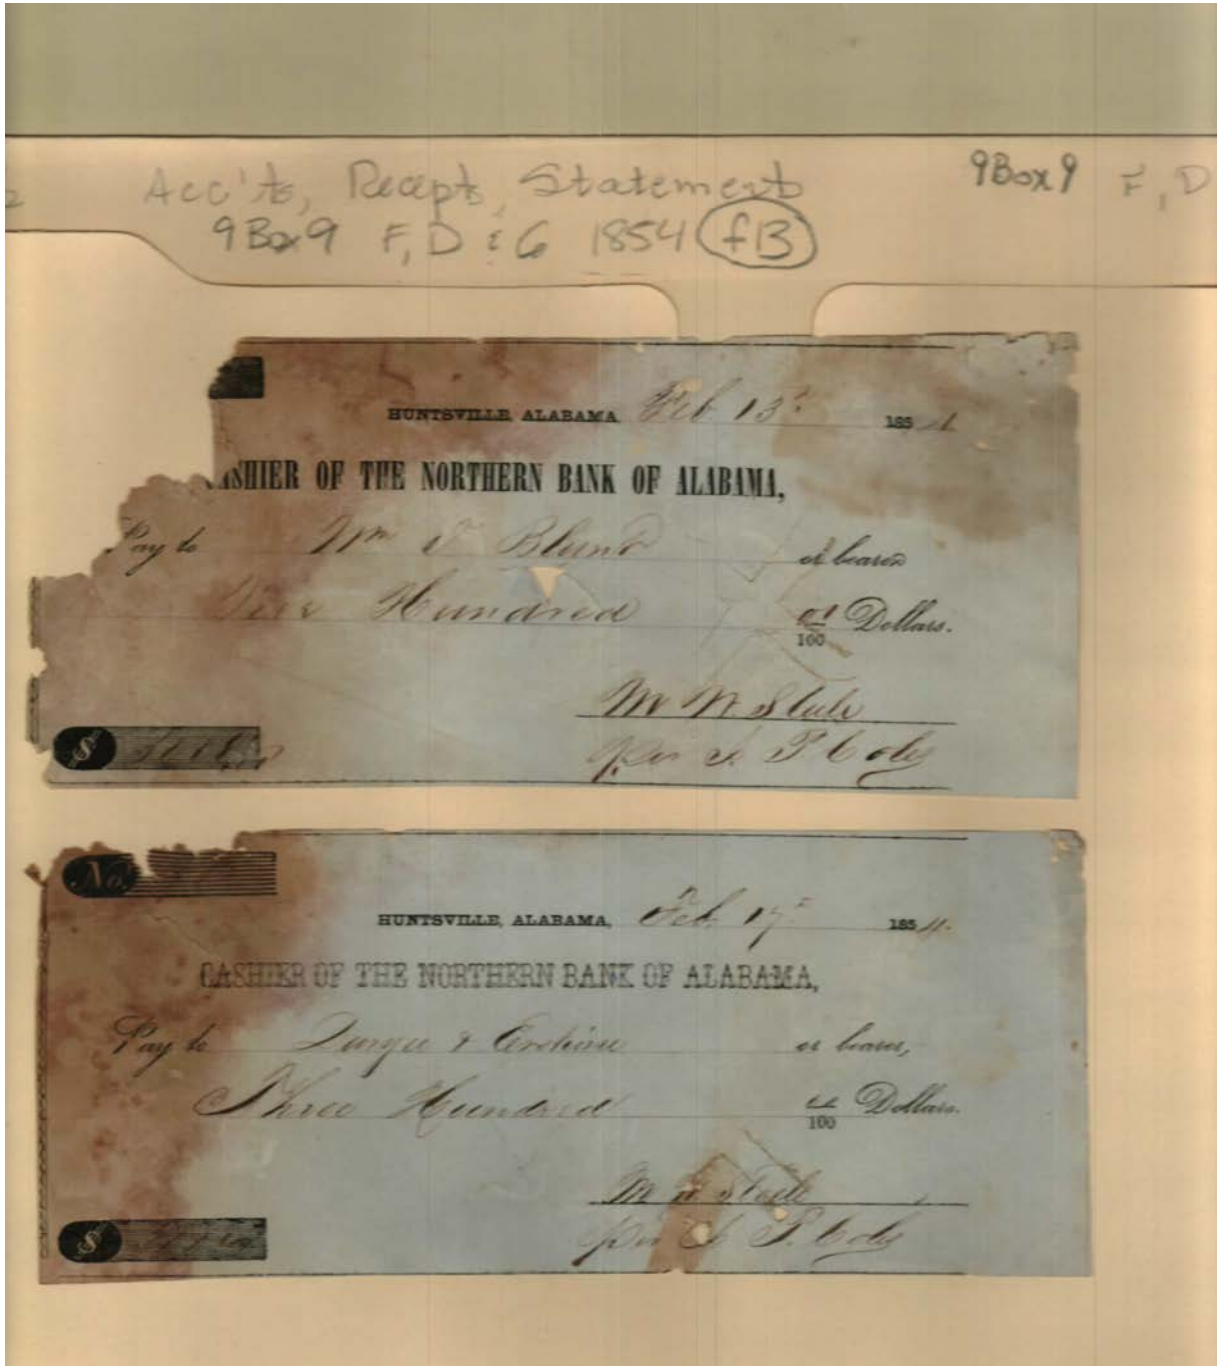 Acc'ts, Recepts, Statements
9Box9 F, D
9Box9 F, D & G 1854 f13
HUNTSVILLE, ALABAMA, Feb 13 185
CASHIER OF THE NORTHERN BANK OF ALABAMA,
Pay to Wm Blunt or bearer
Hundred 100 Dollars.
M W. Steele
per S. P. Coly
$
No.
HUNTSVILLE, ALABAMA, Feb. 17 1854.
CASHIER OF THE NORTHERN BANK OF ALABAMA,
Pay to & Erskine or bearer,
Three Hundred 100 Dollars.
M W Steele
per S. P. Coly
$